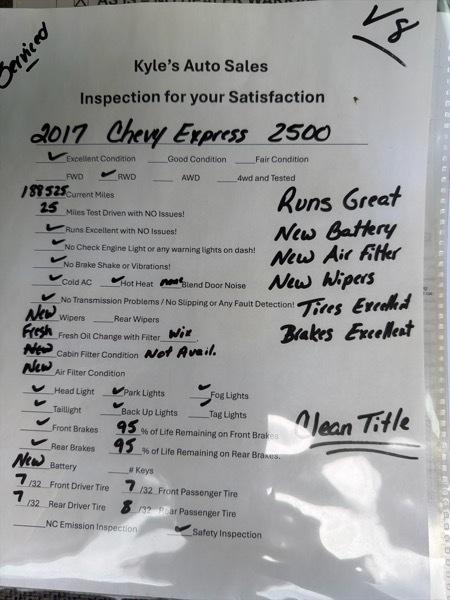 V8
Serviced
Kyle's Auto Sales
Inspection for your Satisfaction
2017 Chevy Express 2500
✓ Excellent Condition ___Good Condition ___Fair Condition
___FWD ✓ RWD ___AWD ___4wd and Tested
188525 Current Miles
25 Miles Test Driven with NO Issues!
✓ Runs Excellent with NO Issues!
✓ No Check Engine Light or any warning lights on dash!
✓ No Brake Shake or Vibrations!
✓ Cold AC ✓ Hot Heat none Blend Door Noise
✓ No Transmission Problems / No Slipping or Any Fault Detection!
New Wipers ___Rear Wipers
Fresh Fresh Oil Change with Filter Wix.
New Cabin Filter Condition Not Avail.
New Air Filter Condition
✓ Head Light ✓ Park Lights ✓ Fog Lights
✓ Taillight ✓ Back Up Lights ✓ Tag Lights
✓ Front Brakes 95 % of Life Remaining on Front Brakes
✓ Rear Brakes 95 % of Life Remaining on Rear Brakes.
New Battery ___# Keys
7 /32 Front Driver Tire 7 /32 Front Passenger Tire
7 /32 Rear Driver Tire 8 /32 Rear Passenger Tire
___NC Emission Inspection ✓ Safety Inspection
Runs Great
New Battery
New Air Filter
New Wipers
Tires Excellent
Brakes Excellent
Clean Title